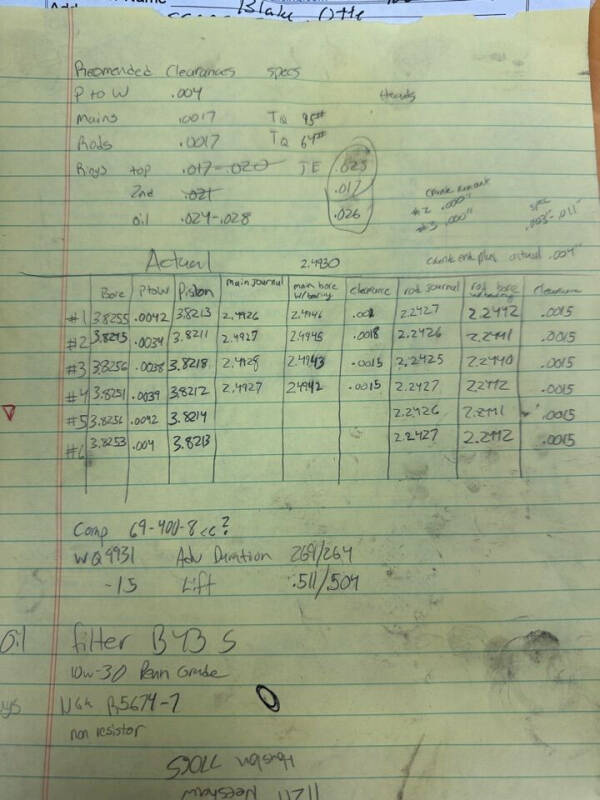 Name Blake Otte
Recomended Clearances specs
P to W .004 Heads
Mains .0017 TQ 95#
Rods .0017 TQ 64#
Rings top .017-.020 JE .023
2nd .021 .017
oil .024-.028 .026
#2 .000" spec
#3 .000" .003"-.011"
Actual 2.4930 actual .004"
Bore PtoW Piston main journal main bore w/bearing clearance rod journal rod bore w/bearing clearance
#1 3.8255 .0042 3.8213 2.4926 2.4946 .002 2.2427 2.2442 .0015
#2 3.8245 .0034 3.8211 2.4927 2.4945 .0018 2.2426 2.2441 .0015
#3 3.8256 .0038 3.8218 2.4928 2.4943 .0015 2.2425 2.2440 .0015
#4 3.8251 .0039 3.8212 2.4927 2.4942 .0015 2.2427 2.2442 .0015
#5 3.8256 .0042 3.8214 2.2426 2.2441 .0015
#6 3.8253 .004 3.8213 2.2427 2.2442 .0015
Comp 69-400-8 cc?
WQ4931 Adv Duration 264/264
-15 Lift .511/504
Oil filter B43 S
10w-30 Penn Grade
NGK B5674-7
non resistor